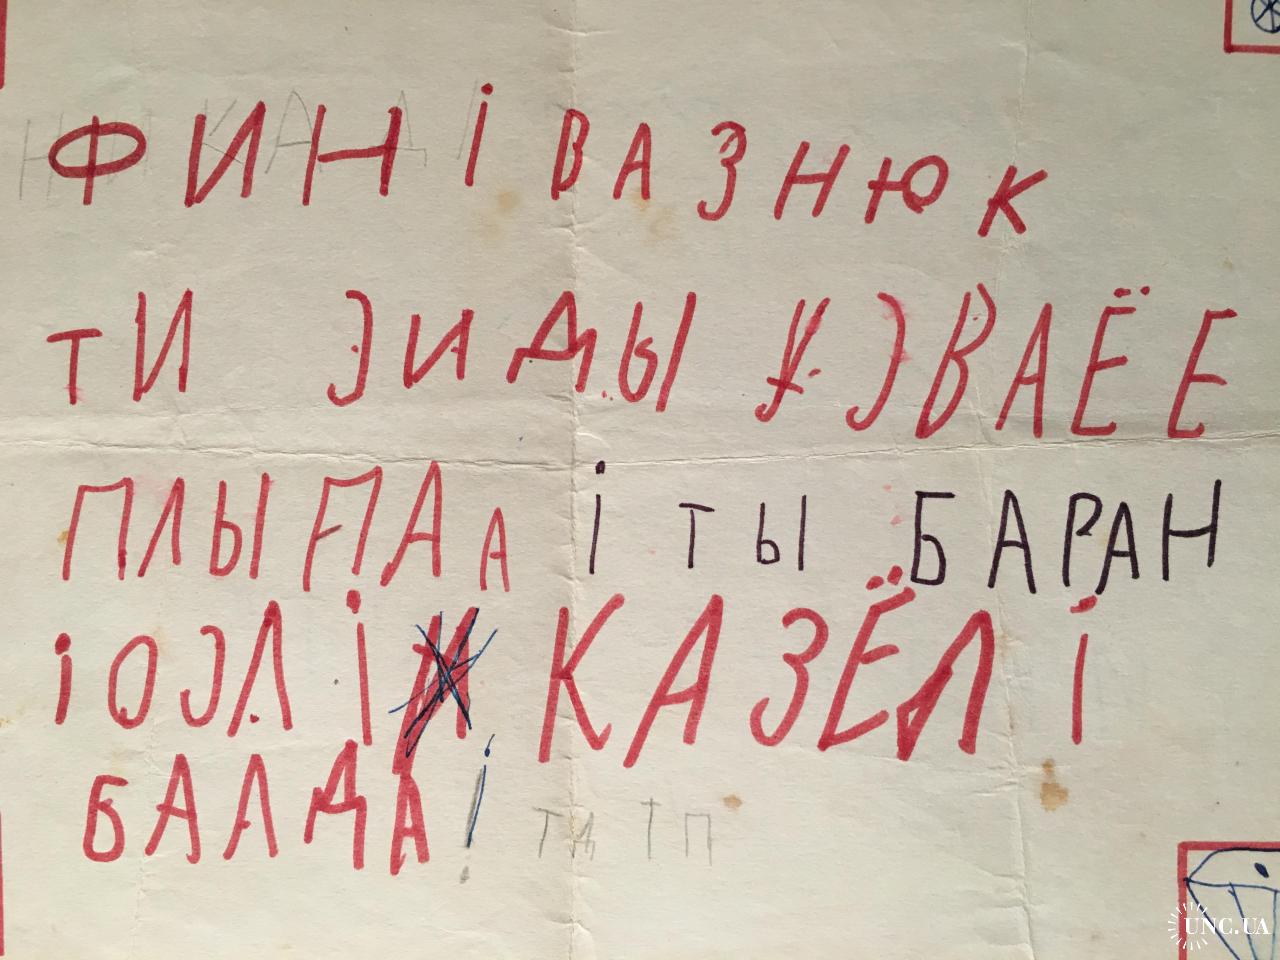 ФИНІ ВАЗНЮК
ТИ ЗИДЫ УЗВАЁЕ
ПЛЫПАА І ТЫ БАРАН
ІОЗЛІ КАЗЁЛ І
БАЛДА!
UNC.UA